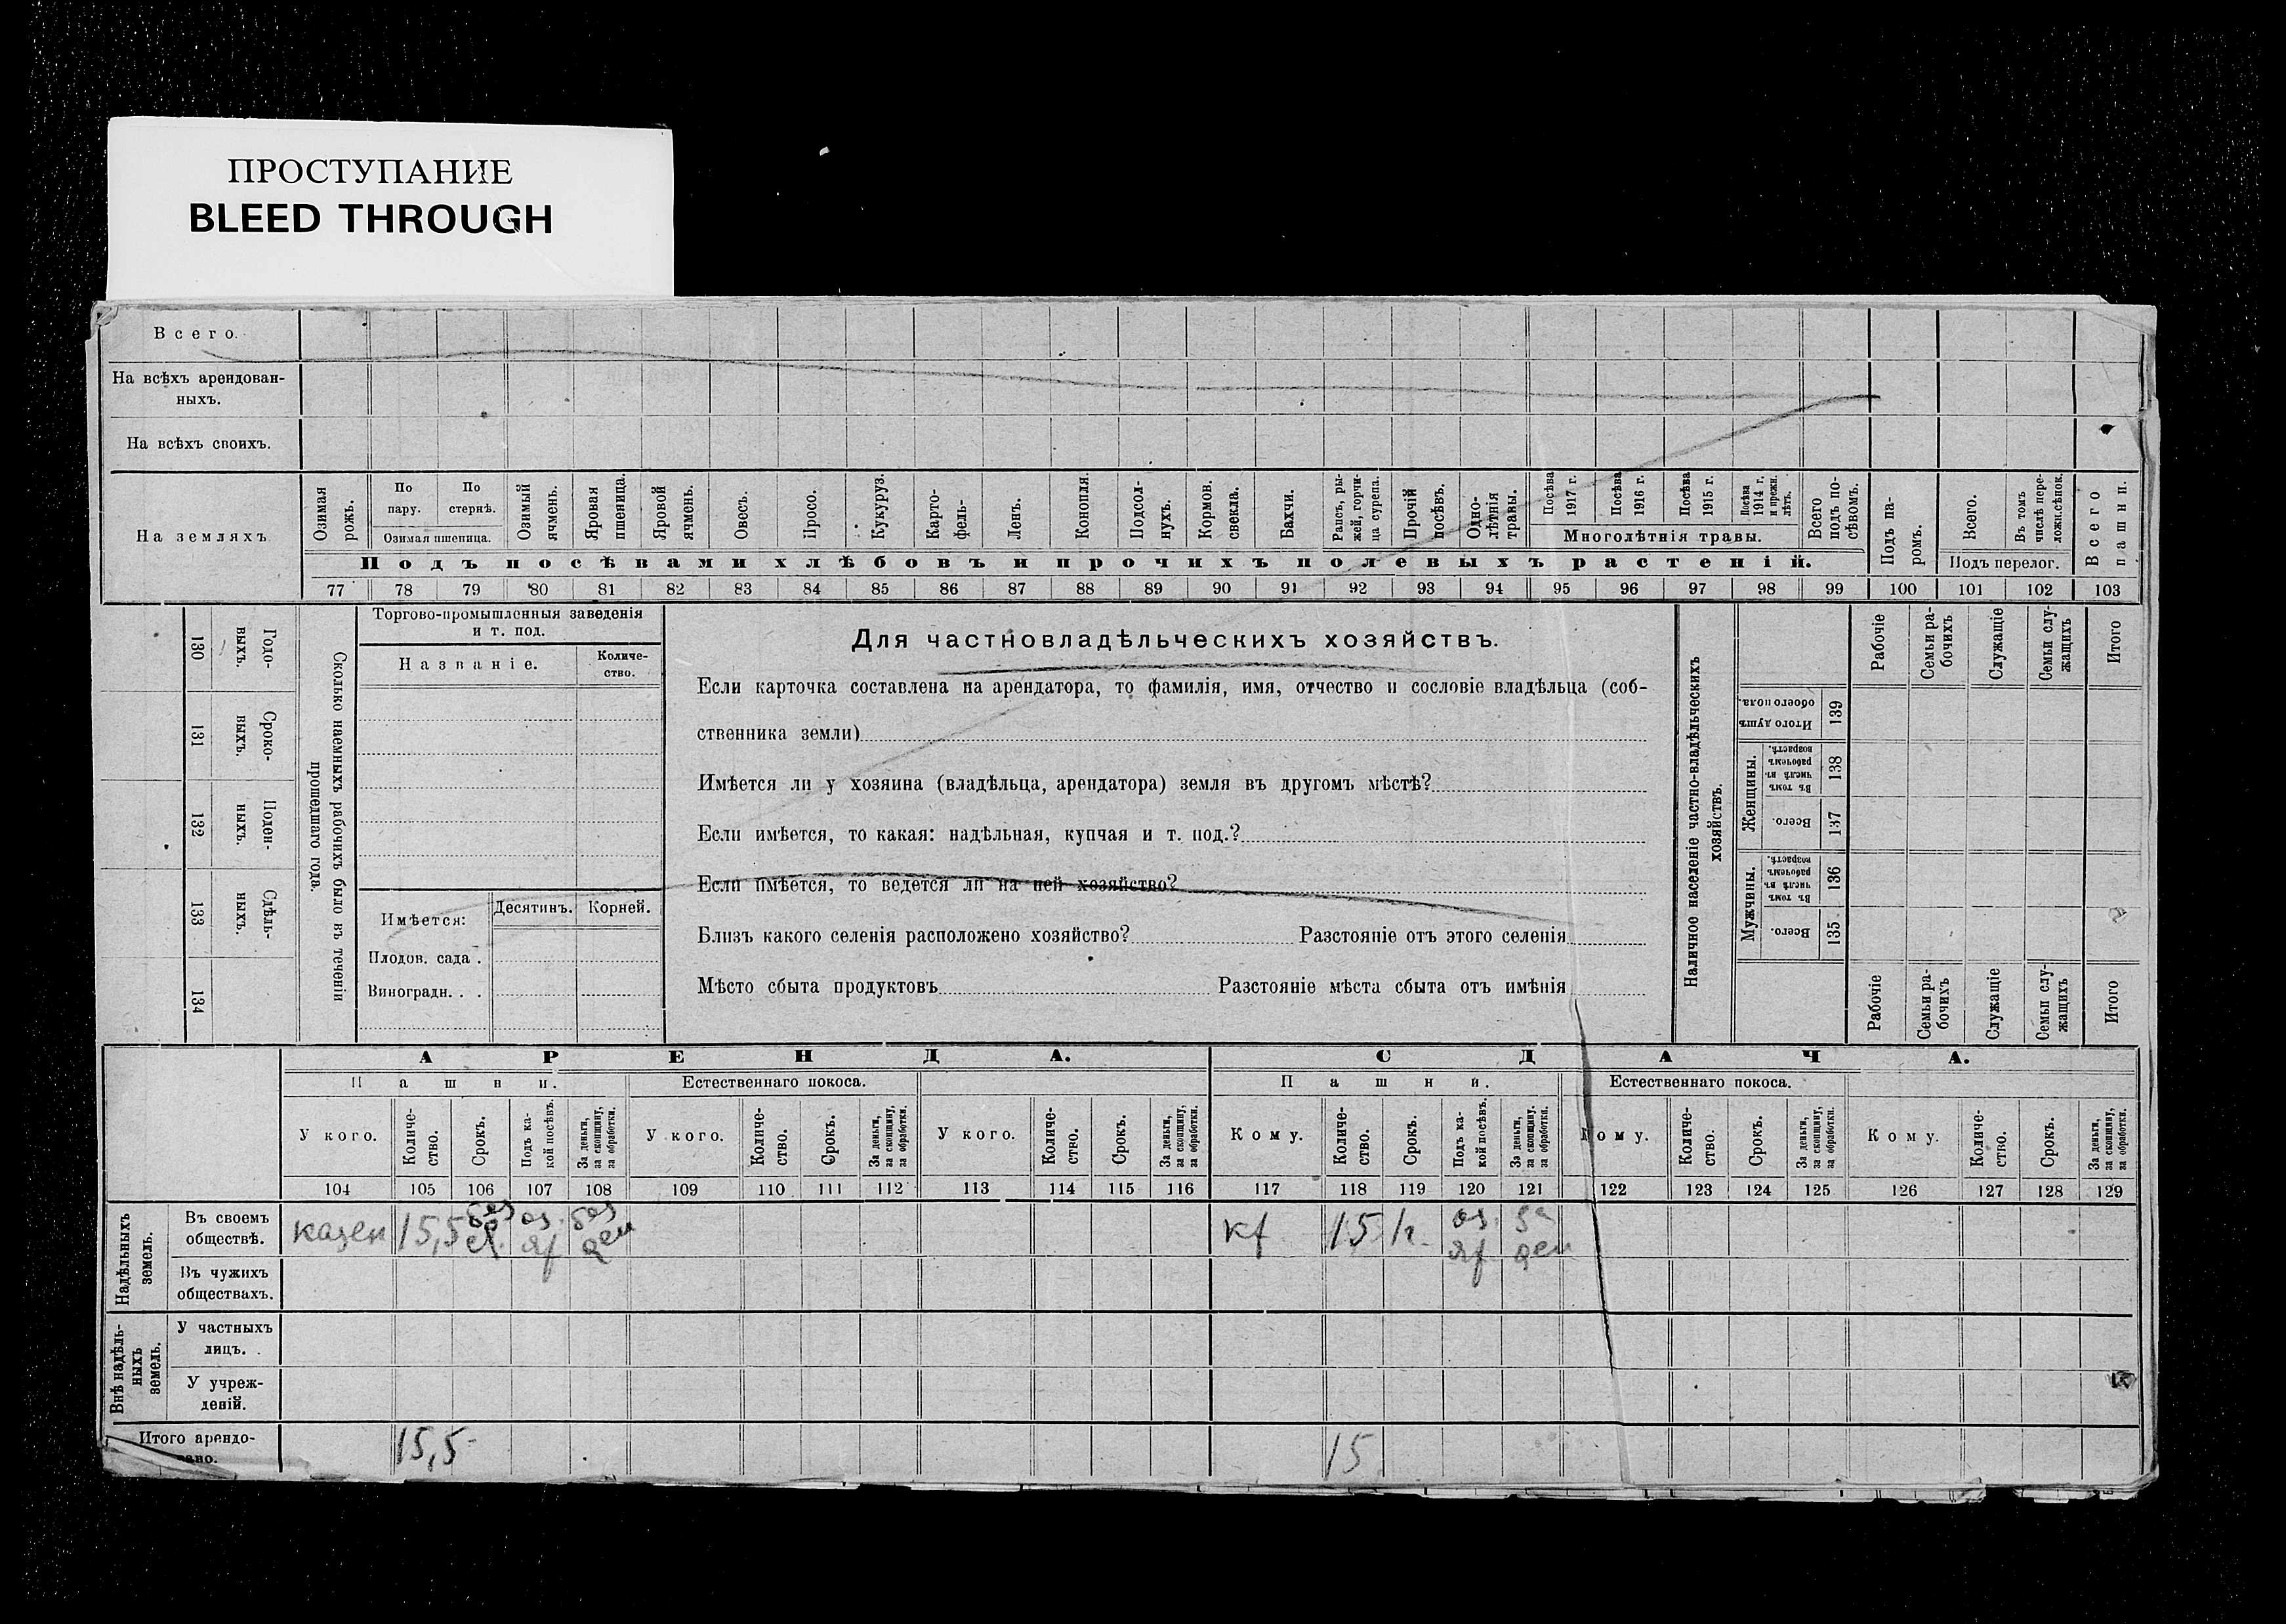 ПРОСТУПАНИЕ
BLEED THROUGH
Всего.
На всѣхъ арендован-
ныхъ.
На всѣхъ своихъ.
На земляхъ
Озимая рожь.
По пару.
По стернѣ.
Озимая пшеница.
Озимый ячмень.
Яровая пшеница.
Яровой ячмень.
Овесъ.
Просо.
Кукуруз.
Карто-
фель-
Ленъ.
Конопля.
Подсол-
нухъ.
Кормов. свекла.
Бахчи.
Рапсъ, ры-
жей, горчи-
ца сурепа.
Прочій посѣвъ.
Одно-
лѣтнія травы.
Посѣва 1917 г.
Посѣва 1916 г.
Посѣва 1915 г.
Посѣва 1914 г. и прежн. лѣтъ.
Многолѣтнія травы.
Всего подъ по-
сѣвомъ.
Подъ па-
ромъ.
Всего.
Въ томъ числѣ пере-
ложн.сѣнок.
Подъ перелог.
Всего пашни.
Подъ посѣвами хлѣбовъ и прочихъ полевыхъ растеній.
77 78 79 80 81 82 83 84 85 86 87 88 89 90 91 92 93 94 95 96 97 98 99 100 101 102 103
130 Годо-
выхъ.
131 Сроко-
выхъ.
132 Поден-
ныхъ.
133 Сдѣль-
ныхъ.
134
Сколько наемныхъ рабочихъ было въ теченіи
прошедшаго года.
Торгово-промышленныя заведенія
и т. под.
Названіе.
Количе-
ство.
Имѣется:
Десятинъ. Корней.
Плодов. сада .
Виноградн. . .
Для частновладѣльческихъ хозяйствъ.
Если карточка составлена на арендатора, то фамилія, имя, отчество и сословіе владѣльца (соб-
ственника земли)
Имѣется ли у хозяина (владѣльца, арендатора) земля въ другомъ мѣстѣ?
Если имѣется, то какая: надѣльная, купчая и т. под.?
Если имѣется, то ведется ли на ней хозяйство?
Близъ какого селенія расположено хозяйство? Разстояніе отъ этого селенія
Мѣсто сбыта продуктовъ Разстояніе мѣста сбыта отъ имѣнія
Наличное населеніе частно-владѣльческихъ
хозяйствъ.
Рабочіе
Семьи ра-
бочихъ
Служащіе
Семьи слу-
жащихъ
Итого
Итого душъ обоего пола.
139
Женщины.
Въ томъ числѣ въ рабочемъ возрастѣ.
138
Всего.
137
Мужчины.
Въ томъ числѣ въ рабочемъ возрастѣ.
136
Всего.
135
Рабочіе
Семьи ра-
бочихъ
Служащіе
Семьи слу-
жащихъ
Итого
АРЕНДА. СДАЧА.
Пашни. Естественнаго покоса. Пашни. Естественнаго покоса.
У кого. Количе-
ство. Срокъ. Подъ ка-
кой посѣвъ. За деньги, за скопщину, за обработки.
У кого. Количе-
ство. Срокъ. За деньги, за скопщину, за обработки.
У кого. Количе-
ство. Срокъ. За деньги, за скопщину, за обработки.
Кому. Количе-
ство. Срокъ. Подъ ка-
кой посѣвъ. За деньги, за скопщину, за обработки.
Кому. Количе-
ство. Срокъ. За деньги, за скопщину, за обработки.
Кому. Количе-
ство. Срокъ. За деньги, за скопщину, за обработки.
104 105 106 107 108 109 110 111 112 113 114 115 116 117 118 119 120 121 122 123 124 125 126 127 128 129
Надѣльныхъ земель.
Въ своемъ
обществѣ.
казен 15,5 оз. яр ден
15 оз. яр за ден
Въ чужихъ
обществахъ.
Внѣ надѣль-
ныхъ земель.
У частныхъ
лицъ. .
У учреж-
деній.
Итого арендо-
вано.
15,5 15